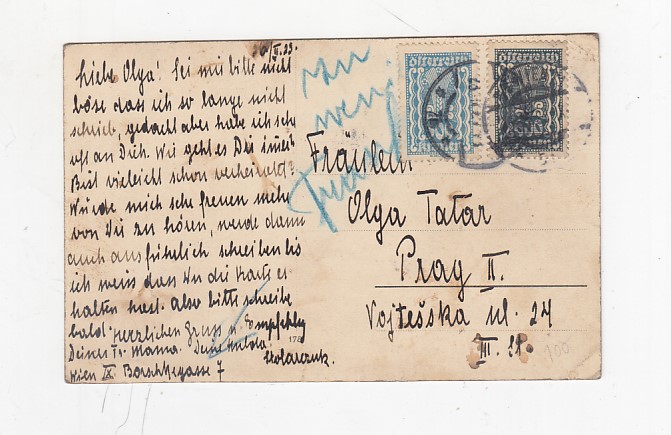 6/II.23.
Liebe Olga! Sei mir bitte nicht
böse dass ich so lange nicht
schrieb, gedacht aber habe ich sehr
oft an Dich. Wie geht es Dir immer?
Bist vieleicht schon verheiratet?
Würde mich sehr freuen mehr
von Dir zu hören, werde dann
auch ausführlich schreiben bis
ich weis dass Du die Karte er
halten hast. Also bitte schreibe
bald herzlichen Gruss u. Empfehlg
Deiner Fr. Mama. Deine
Wien IX 7
zu
weni
Fräulein
Olga Tatar
Prag II.
Vojtešska ul. 24
III. St.
österreich
österreich
178
100